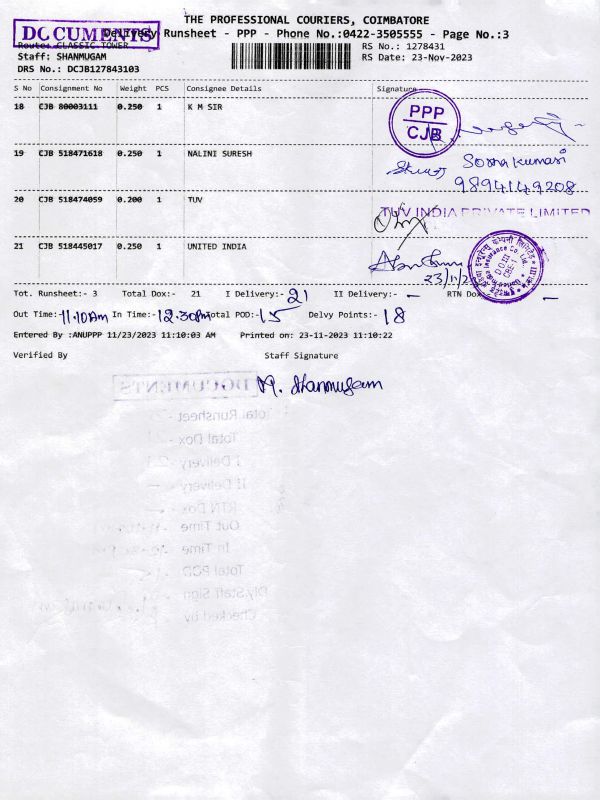 THE PROFESSIONAL COURIERS, COIMBATORE
DOCUMENTS
Delivery Runsheet - PPP - Phone No.:0422-3505555 - Page No.:3
Route: CLASSIC TOWER
RS No.: 1278431
Staff: SHANMUGAM
RS Date: 23-Nov-2023
DRS No.: DCJB127843103
S No Consignment No Weight PCS Consignee Details Signature
18 CJB 80003111 0.250 1 K M SIR
PPP
CJB
19 CJB 518471618 0.250 1 NALINI SURESH
9894149208
20 CJB 518474059 0.200 1 TUV
TUV INDIA PRIVATE LIMITED
21 CJB 518445017 0.250 1 UNITED INDIA
Tot. Runsheet:- 3 Total Dox:- 21 I Delivery:- 21 II Delivery:- - RTN Dox -
Out Time: 11.10Am In Time:- 12.30pm Total POD:- 15 Delvy Points:- 18
Entered By :ANUPPP 11/23/2023 11:10:03 AM Printed on: 23-11-2023 11:10:22
Verified By Staff Signature
M. Shanmugam
DOCUMENTS
Total Runsheet -
Total Dox -
I Delivery -
II Delivery -
RTN Dox -
Out Time
In Time
Total POD
Dly.Staff Sign
Checked by